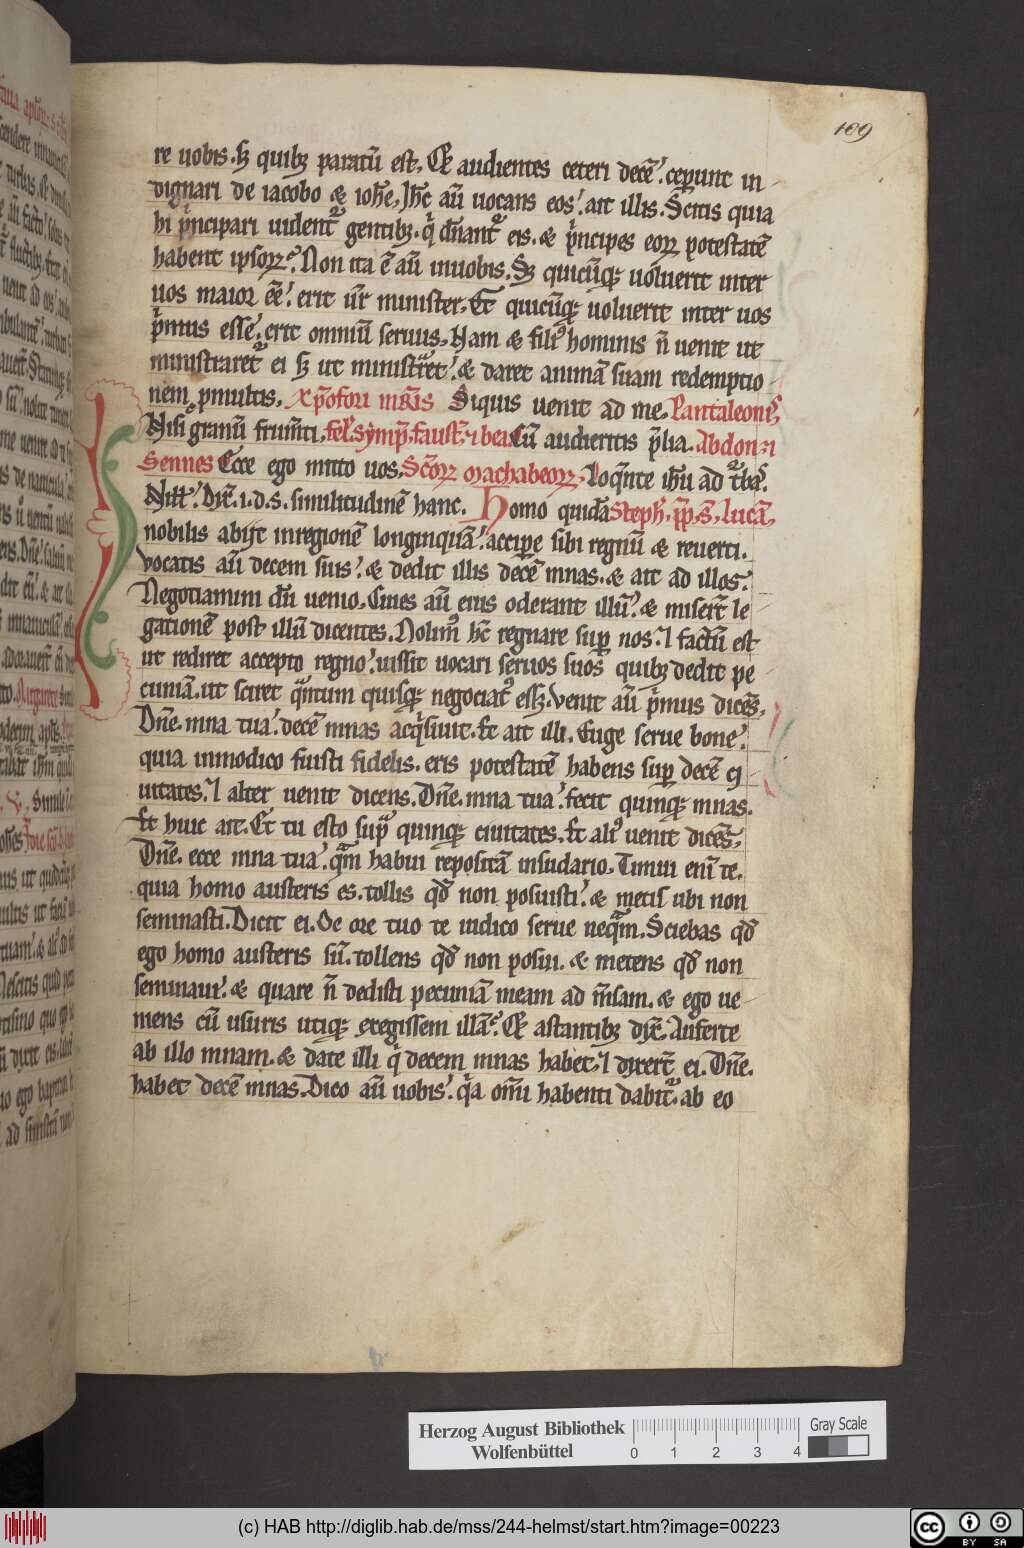 189
re uobis. Sꝫ quibꝫ paratū est. Et audientes ceteri decē. ceperunt in
dignari de iacobo & iohe. Ihc aū uocans eos. ait illis. Scitis quia
hi pͥncipari uident᷑ gentibꝫ. qͥ dn̄ant᷑ eis. & pͥncipes eoꝝ potestatē
habent ipsoꝝ. Non ita ē aū in uobis. Sꝫ quicūqꝫ uoluerit inter
uos maior eē. erit ur̄ minister. Et quicūqꝫ uoluerit inter uos
pͥmus esse. erit omniū seruus. Nam & filiꝰ hominis n̄ uenit ut
ministraret᷑ ei sꝫ ut ministrͣret. & daret animā suam redemptio
nem ꝓ multis. Xp̄ofori mr̄is Siquis uenit ad me. Pantaleonis
Nisi granū frum̄ti. fel. simp̄. faust. ⁊ bea. Cū audieritis p̄lia. Abdon ⁊
Sennes Ecce ego mitto uos. Sc̄oꝝ machabeoꝝ. Loqͣnte ihū ad tͬbas.
Nill. Dix̄. i. d. s. similitudinē hanc. Homo quidā Steph. pp̄. S. lucā.
nobilis abijt in regionē longinquā. accipe sibi regnū & reuerti.
Vocatis aū decem suis. & dedit illis decē mnas. & ait ad illos.
Negotiamini dū uenio. Ciues aū eius oderant illū. & miser̄t le
gationē post illū dicentes. Nolimꝰ hc̄ regnare sup nos. ⁊ factū est
ut rediret accepto regno. iussit uocari seruos suos quibꝫ dedit pe
cuniā. ut sciret qͣntum quisqꝫ negociatꝰ essꝫ. Venit aū pͥmus dicēs.
Dn̄e. mna tua. decē mnas acqͥsiuit. Et ait illi. Euge serue bone.
quia in modico fuisti fidelis. eris potestatē habens sup decē ci
uitates. ⁊ alter uenit dicens. Dn̄e. mna tua. fecit quinqꝫ mnas.
Et huic ait. Et tu esto supͣ quinqꝫ ciuitates. Et aliꝰ uenit dicēs.
Dn̄e. ecce mna tua. qͣm habui repositā in sudario. Timui eni te.
quia homo austeris es. tollis qd̄ non posuisti. & metis ubi non
seminasti. Dicit ei. De ore tuo te iudico serue neqͣm. Sciebas qd̄
ego homo austeris sū. tollens qd̄ non posui. & metens qd̄ non
seminaui. & quare n̄ dedisti pecuniā meam ad m̄sam. & ego ue
niens cū usuris utiqꝫ exegissem illā. Et astantibꝫ dix̄. Auferte
ab illo mnam. & date illi qͥ decem mnas habet. ⁊ dixert̄ ei. Dn̄e.
habet decē mnas. Dico aū uobis. qͥa om̄i habenti dabit᷑. ab eo
Herzog August Bibliothek
Wolfenbüttel
0 1 2 3 4
Gray Scale
(c) HAB http://diglib.hab.de/mss/244-helmst/start.htm?image=00223
cc BY SA